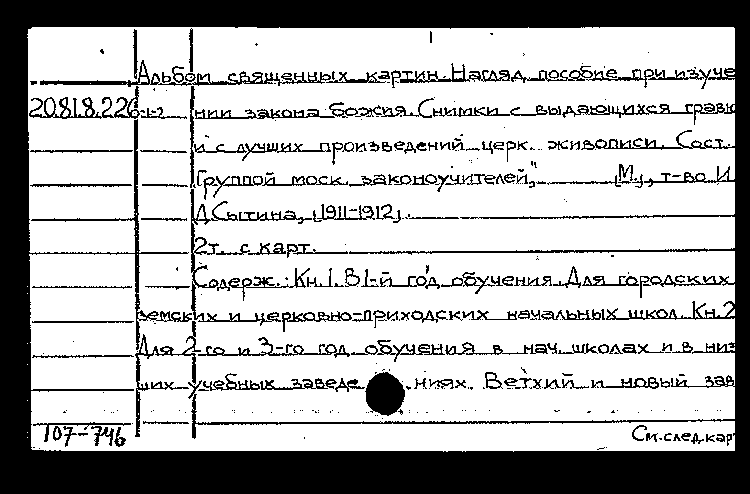 Альбом священных картин. Нагляд. пособие при изуче
20.81.8.226-1-2 нии закона божия. Снимки с выдающихся гравю
и с лучших произведений церк. живописи. Сост.
"Группой моск. законоучителей". [М.], т-во И.
Д. Сытина, [1911-1912].
2т. с карт.
Содерж.: Кн. 1. В 1-й год обучения. Для городских
земских и церковно-приходских начальных школ. Кн. 2
Для 2-го и 3-го год. обучения в нач. школах и в низ
ших учебных заведе ниях. Ветхий и новый зав
107-746 См. след. кар